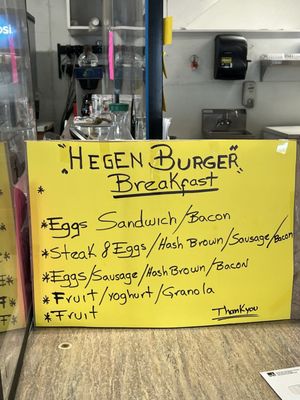 "HEGEN BURGER"
Breakfast
*Eggs Sandwich/Bacon
*Steak & Eggs/Hash Brown/Sausage/Bacon
*Eggs/Sausage/Hash Brown/Bacon
*Fruit/Yoghurt/Granola
*Fruit
Thank you